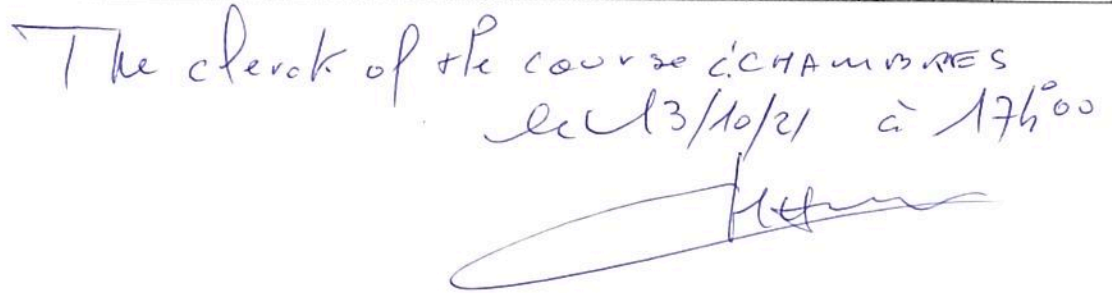 The clerck of the course C.CHAMBRES
le 13/10/21 à 17h00